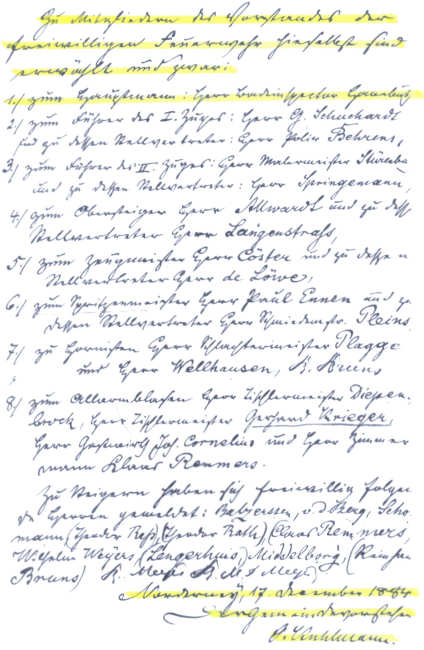 Zu Mitgliedern des Vorstandes der
freiwilligen Feuerwehr hierselbst sind
erwählt und zwar:
1.) zum Hauptmann: Herr Badeinspector
2.) zum Führer des I. Zuges: Herr G. Schuchardt
und zu dessen Stellvertreter: Herr Behrens,
3.) zum Führer des II Zuges: Herr Malermeister
und zu dessen Stellvertreter: Herr Springemann,
4.) zum Obersteiger Herr Allwardt und zu dess
Stellvertreter Herr Langenstrass,
5.) zum Zeugmeister Herr Cöster und zu dessen
Stellvertreter Herr de Löwe,
6.) zum Spritzenmeister Herr Paul Ennen und zu
dessen Stellvertreter Herr Schmiedemstr. Pleins
7.) zu Hornisten Herr Schlachtermeister Plagge
und Herr Wellhausen, K. Bruns
8.) zum Allarmblasen Herr Tischlermeister Diepen-
brock, Herr Tischlermeister Gerhard Krieger,
Herr Gastwirth Joh. Cornelius und Herr Zimmer
mann Klaas Remmers.
Zu Steigern haben sich freiwillig folgen
de Herren gemeldet: v. d. Berg, Scho
mann, (Theodor Rass), (Theodor Rath) (Claas Remmers,
Wilhelm Weyers, (Lengerhuis), Middelborg,
Bruns)
Norderney, 17. December 1884
Der Gemeindevorsteher